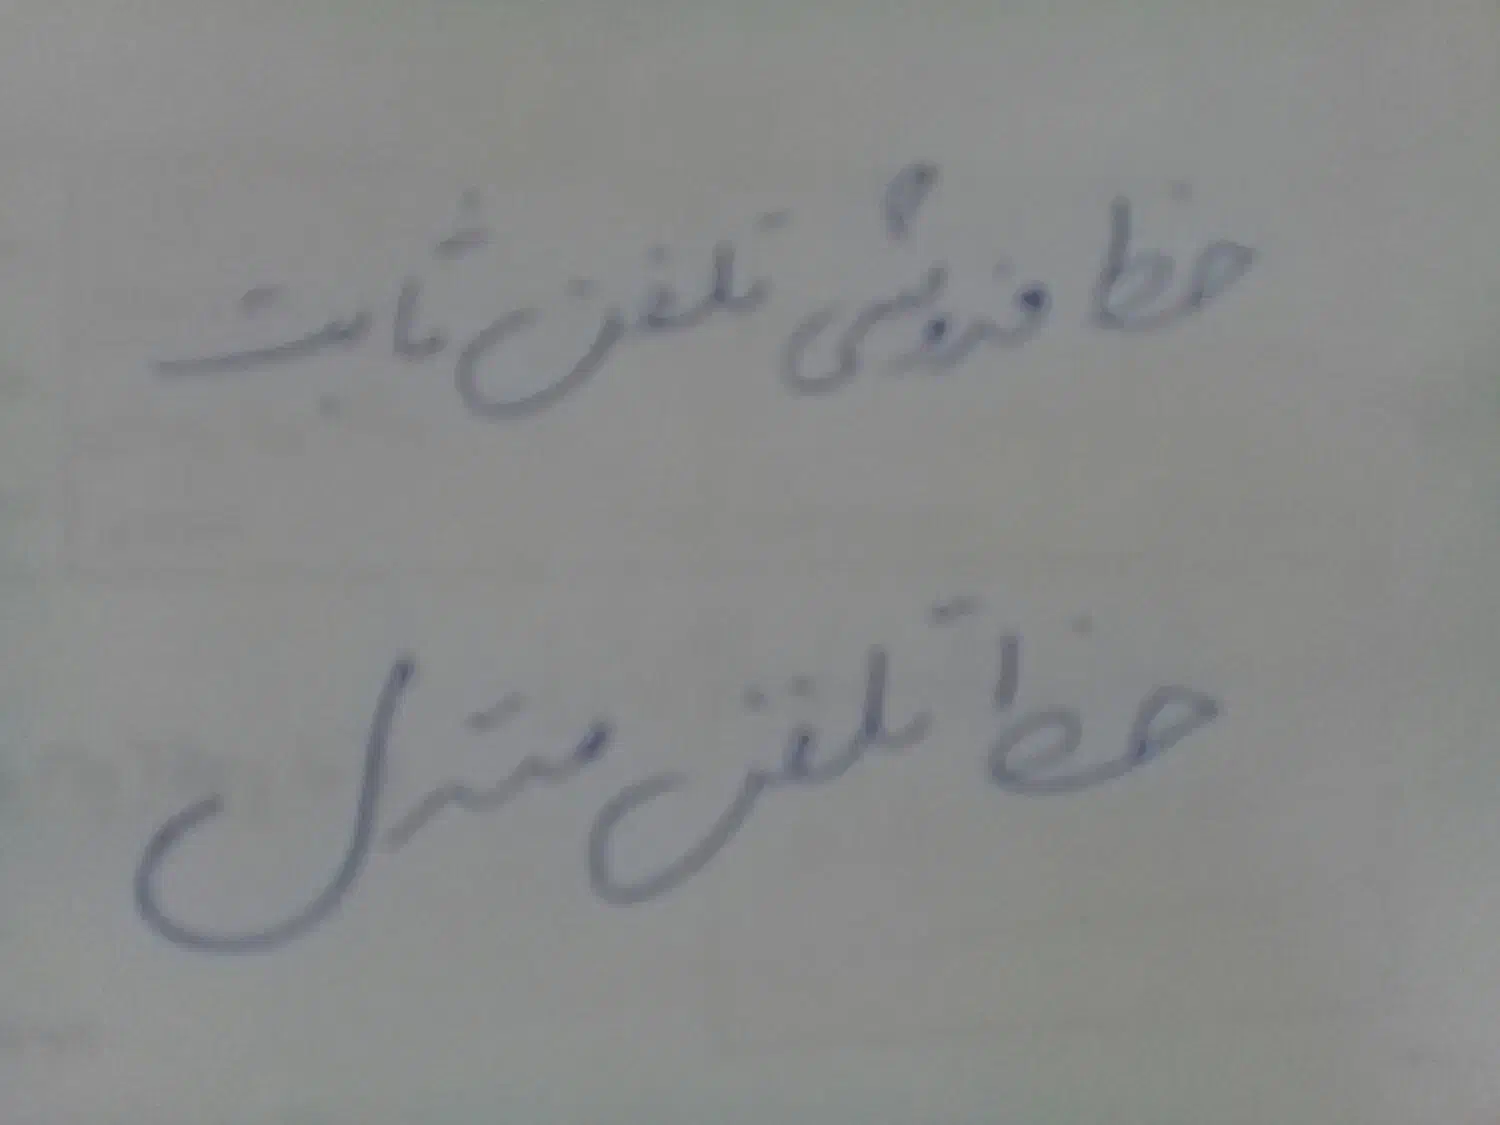 خط فروش تلفن ثابت
خط تلفن منزل